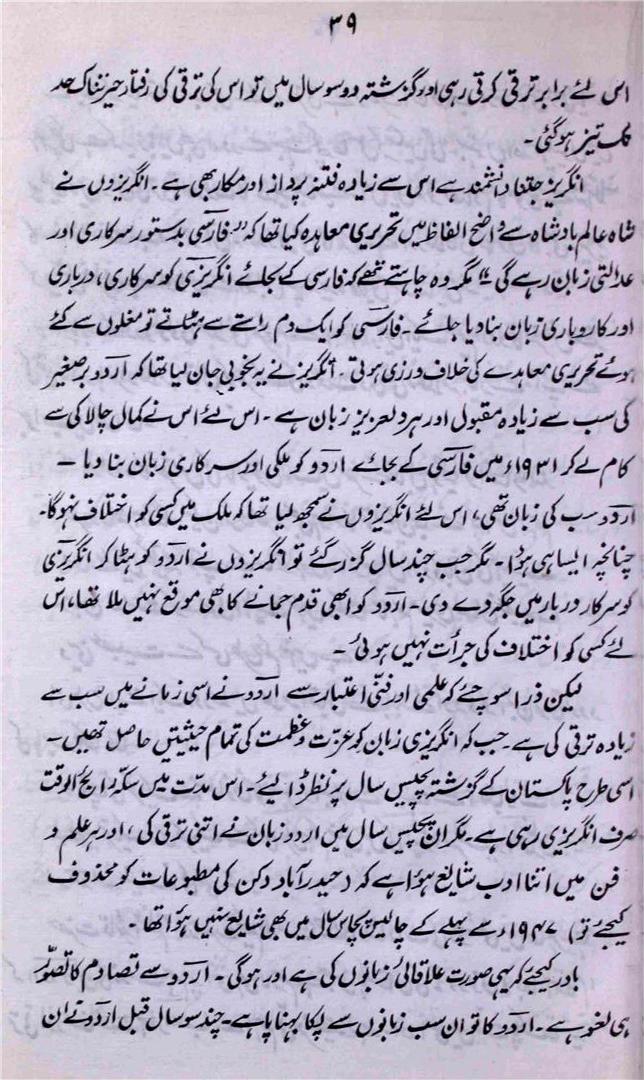 ۳۹
اس لئے برابر ترقی کرتی رہی اور گزشتہ دو سو سال میں تو اس کی ترقی کی رفتار حیرتناک حد
تک تیز ہو گئی ۔
انگریز جتنا دانشمند ہے اس سے زیادہ فتنہ پرداز اور مکار بھی ہے ۔ انگریزوں نے
شاہ عالم بادشاہ سے واضح الفاظ میں تحریری معاہدہ کیا تھا کہ "فارسی بدستور سرکاری اور
عدالتی زبان رہے گی" مگر وہ چاہتے تھے کہ فارسی کے بجائے انگریزی کو سرکاری ، درباری
اور کاروباری زبان بنا دیا جائے ۔ فارسی کو ایک دم راستے سے ہٹاتے تو مغلوں سے کئے
ہوئے تحریری معاہدے کی خلاف ورزی ہوتی ۔ انگریز نے یہ بخوبی جان لیا تھا کہ اردو برصغیر
کی سب سے زیادہ مقبول اور ہر دلعزیز زبان ہے ۔ اس لئے اس نے کمال چالاکی سے
کام لے کر ۱۹۳۱ء میں فارسی کے بجائے اردو کو ملکی اور سرکاری زبان بنا دیا ۔
اردو سب کی زبان تھی ، اس لئے انگریزوں نے سمجھ لیا تھا کہ ملک میں کسی کو اختلاف نہ ہو گا ۔
چنانچہ ایسا ہی ہوا ۔ مگر جب چند سال گزر گئے تو انگریزوں نے اردو کو ہٹا کر انگریزی
کو سرکار دربار میں جگہ دے دی ۔ اردو کو ابھی قدم جمانے کا بھی موقع نہیں ملا تھا ، اس
لئے کسی کو اختلاف کی جرأت نہیں ہوئی ۔
لیکن ذرا سوچئے کہ علمی اور فنی اعتبار سے اردو نے اسی زمانے میں سب سے
زیادہ ترقی کی ہے ۔ جب کہ انگریزی زبان کو عزت و عظمت کی تمام حیثیتیں حاصل تھیں ۔
اسی طرح پاکستان کے گزشتہ پچیس سال پر نظر ڈالیئے ۔ اس مدت میں سکۂ رائج الوقت
صرف انگریزی رہی ہے ۔ مگر ان پچیس سال میں اردو زبان نے اتنی ترقی کی ، اور ہر علم و
فن میں اتنا ادب شایع ہوا ہے کہ (حیدرآباد دکن کی مطبوعات کو محذوف
کیجئے تو) ۱۹۴۷ء سے پہلے کے چالیس پچاس سال میں بھی شایع نہیں ہوا تھا ۔
باور کیجئے کہ یہی صورت علاقائی زبانوں کی ہے اور ہوگی ۔ اردو سے تصادم کا تصوّر
ہی لغو ہے ۔ اردو کا تو ان سب زبانوں سے پکا بہناپا ہے ۔ چند سو سال قبل اردو نے ان